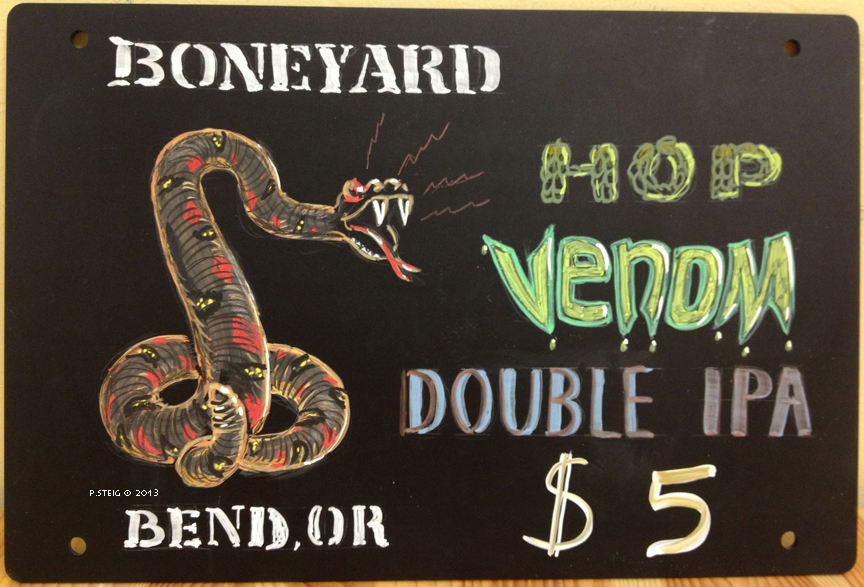 BONEYARD
HOP
VENOM
DOUBLE IPA
$ 5
P.STEIG © 2013
BEND, OR